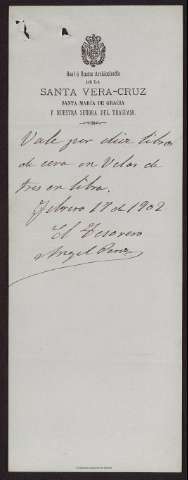 Real é Ilustre Archicofradía
DE LA
SANTA VERA-CRUZ
SANTA MARÍA DE GRACIA
Y NUESTRA SEÑORA DEL TRASPASO.
Vale por diez libras
de cera en Velas de
tres en libra.
Febrero 19 de 1902
El Tesorero
Angel Perez